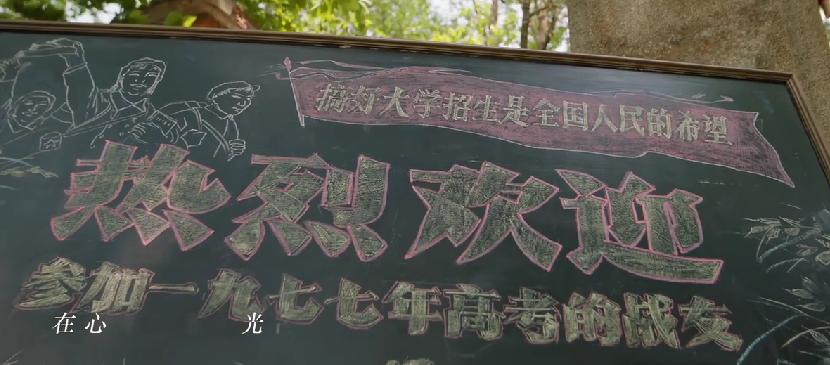 搞好大学招生是全国人民的希望
热烈欢迎
参加一九七七年高考的战友
在心 光